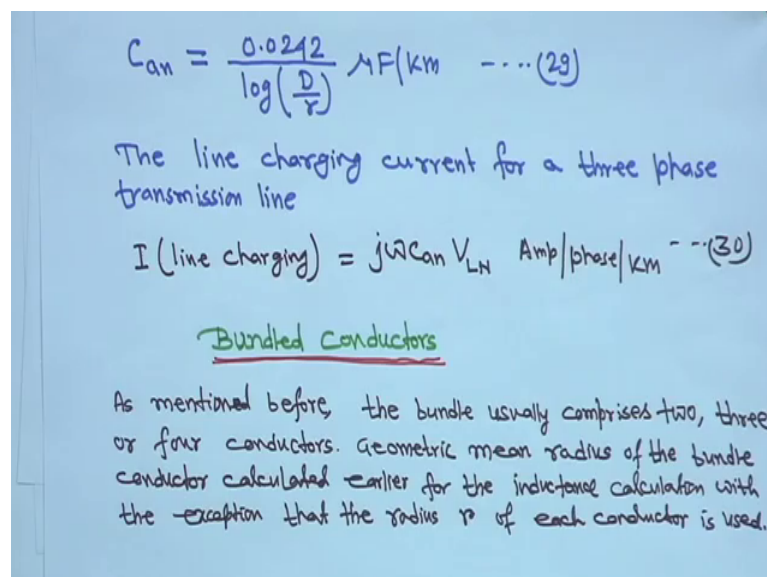 Can = 0.0242 / log(D/r) μF/km ----(29)
The line charging current for a three phase
transmission line
I (line charging) = jωCan VLN Amp/phase/km ----(30)
Bundled Conductors
As mentioned before, the bundle usually comprises two, three
or four conductors. Geometric mean radius of the bundle
conductor calculated earlier for the inductance calculation with
the exception that the radius r of each conductor is used.